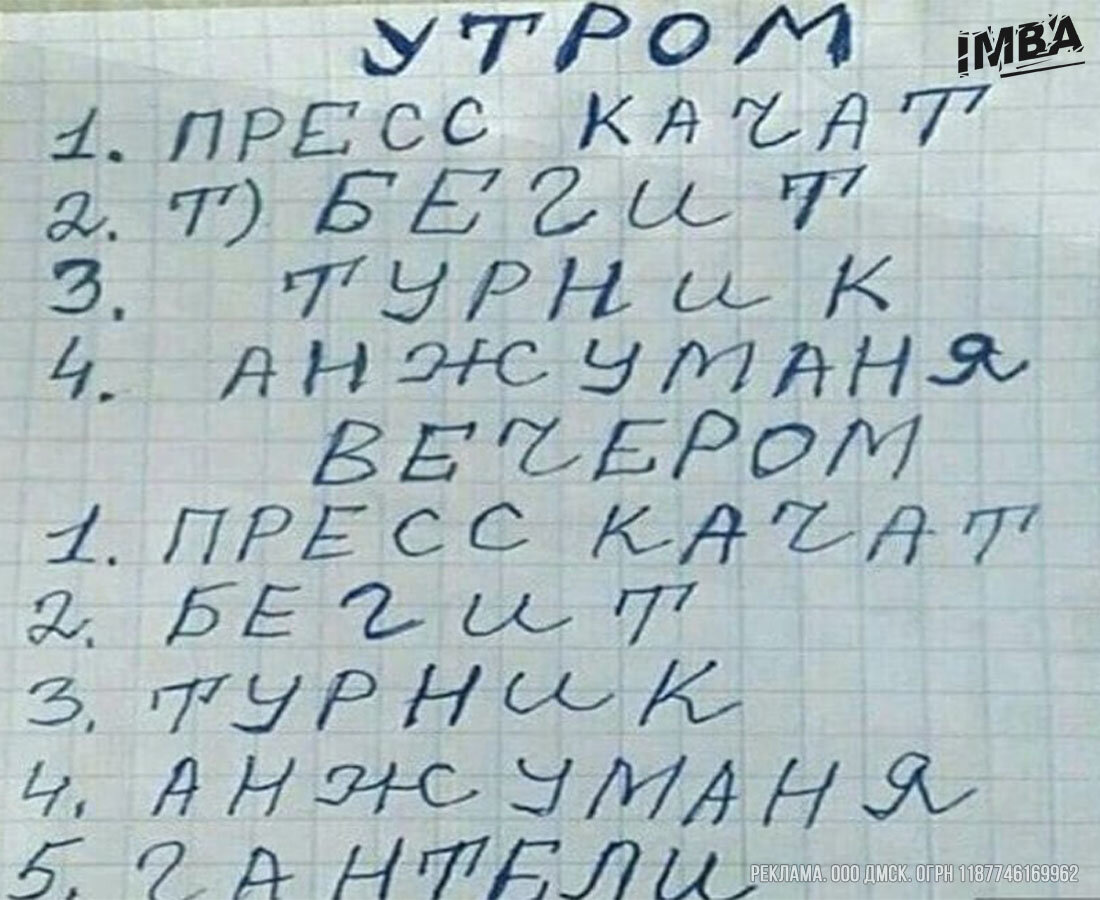 УТРОМ
IMBA
1. ПРЕСС КАЧАТ
2. Т) БЕГИТ
3. ТУРНИК
4. АНЖУМАНЯ
ВЕЧЕРОМ
1. ПРЕСС КАЧАТ
2. БЕГИТ
3. ТУРНИК
4. АНЖУМАНЯ
5. ГАНТЕЛИ
РЕКЛАМА. ООО ДМСК. ОГРН 1187746169962